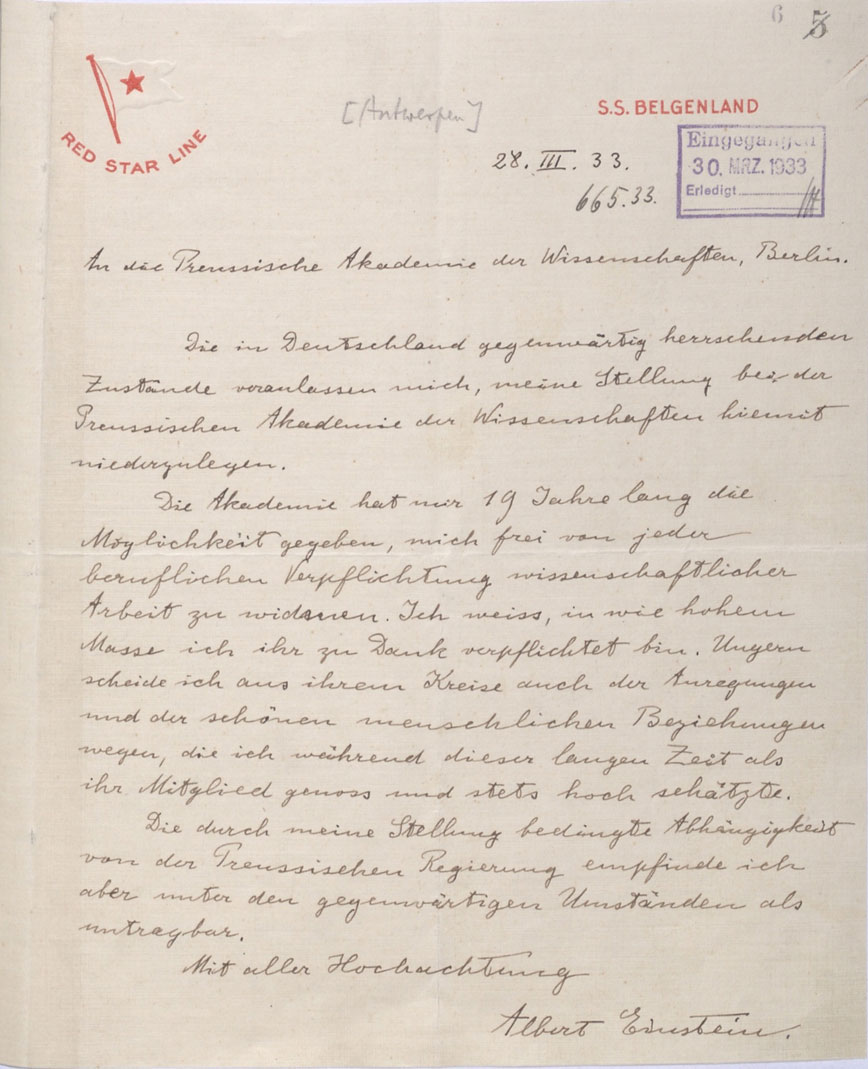 6 5
[Antwerpen]
S.S. BELGENLAND
RED STAR LINE
28. III. 33.
Eingegangen
30. MRZ. 1933
Erledigt
665.33.
An die Preussische Akademie der Wissenschaften, Berlin.
Die in Deutschland gegenwärtig herrschenden
Zustände veranlassen mich, meine Stellung bei der
Preussischen Akademie der Wissenschaften hiemit
niederzulegen.
Die Akademie hat mir 19 Jahre lang die
Möglichkeit gegeben, mich frei von jeder
beruflichen Verpflichtung wissenschaftlicher
Arbeit zu widmen. Ich weiss, in wie hohem
Masse ich ihr zu Dank verpflichtet bin. Ungern
scheide ich aus ihrem Kreise auch der Anregungen
und der schönen menschlichen Beziehungen
wegen, die ich während dieser langen Zeit als
ihr Mitglied genoss und stets hoch schätzte.
Die durch meine Stellung bedingte Abhängigkeit
von der Preussischen Regierung empfinde ich
aber unter den gegenwärtigen Umständen als
untragbar.
Mit aller Hochachtung
Albert Einstein.